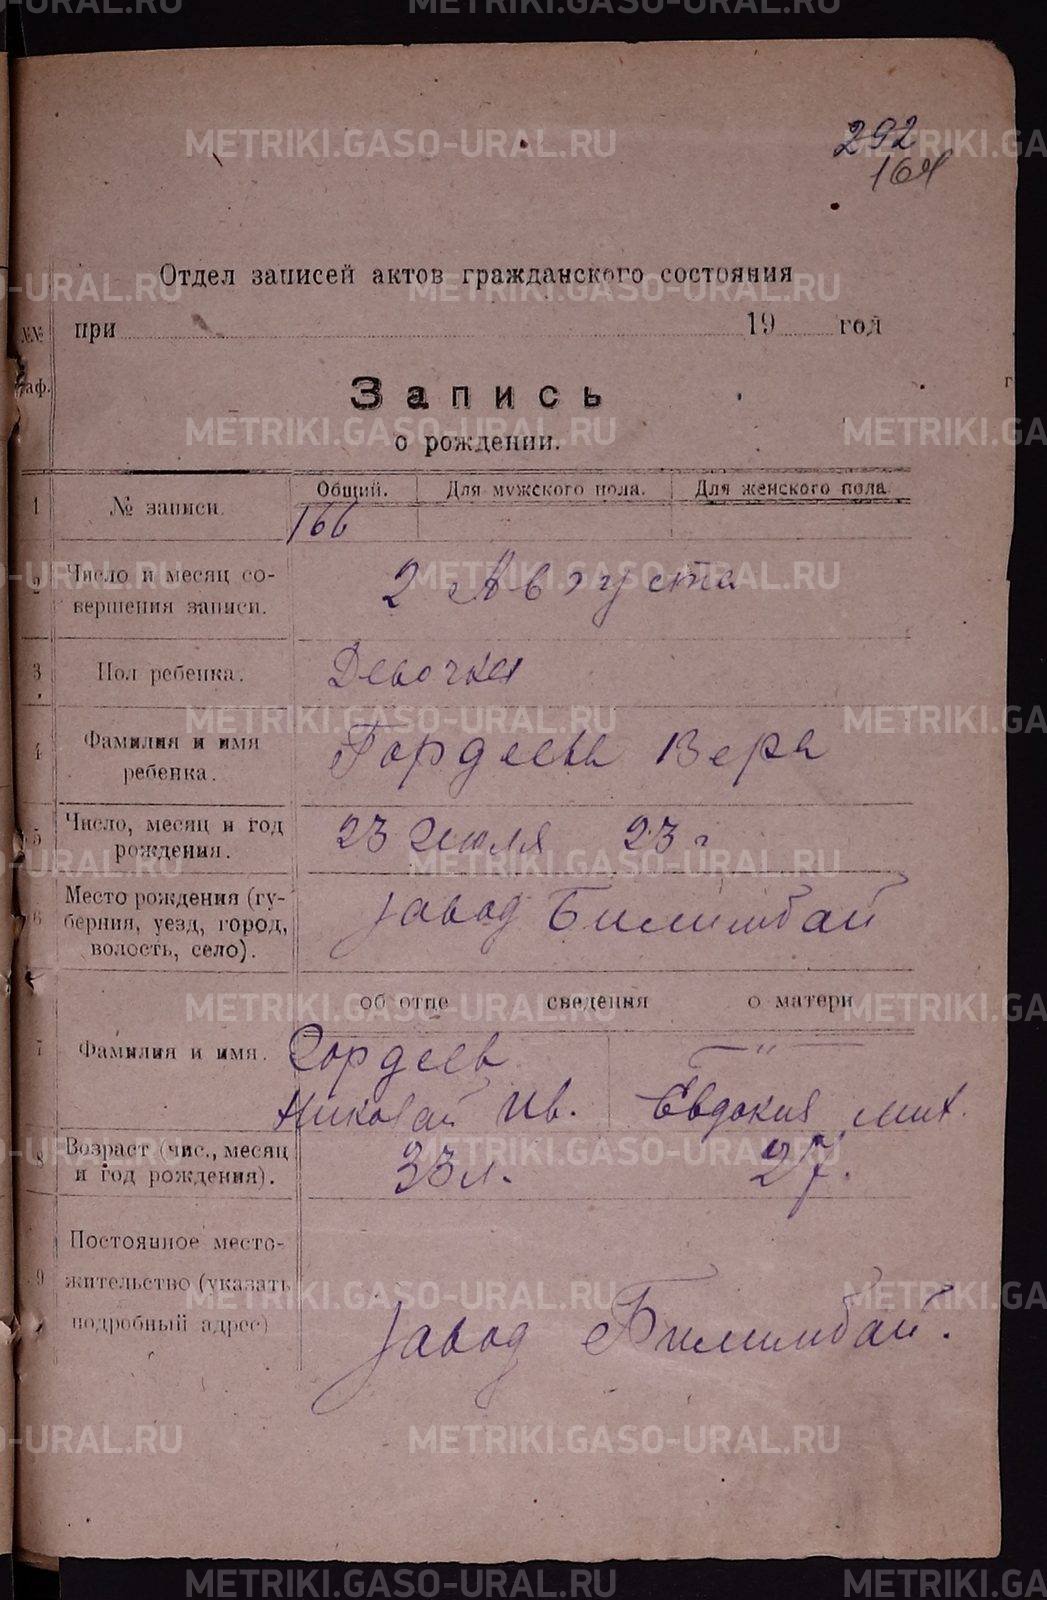 292
164
Отдел записей актов гражданского состояния
№№ при 19 год
раф.
Запись
о рождении.
Общий. Для мужского пола. Для женского пола.
1 № записи. 166
2 Число и месяц со-
вершения записи. 2 Августа
3 Пол ребенка. Девочка
4 Фамилия и имя
ребенка. Гордеева Вера
5 Число, месяц и год
рождения. 23 Июля 23 г
6 Место рождения (гу-
берния, уезд, город,
волость, село). завод Билимбай
об отце сведения о матери
7 Фамилия и имя. Гордеев — " —
Николай Ив. Евдокия мих.
8 Возраст (чис., месяц
и год рождения). 33 л. 27.
9 Постоянное место-
жительство (указать
подробный адрес) завод Билимбай.
METRIKI.GASO-URAL.RU